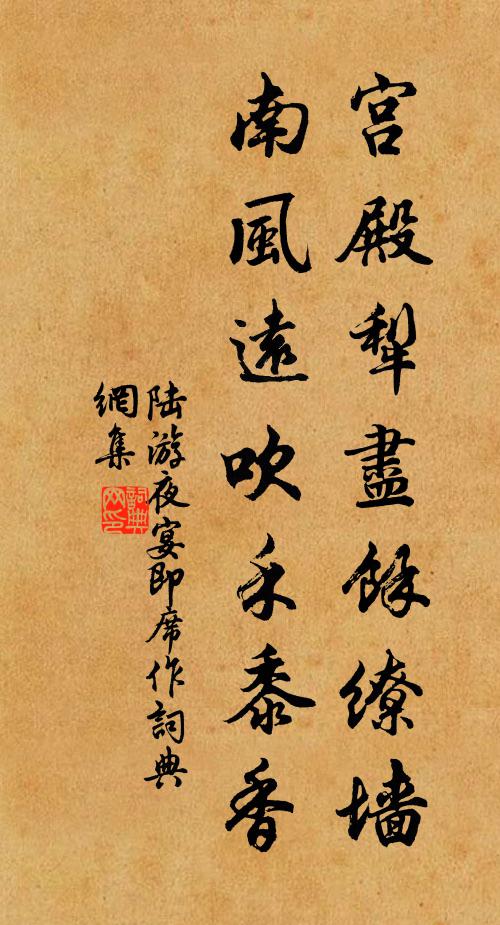 宫殿犁盡餘繚墙
南風遠吹禾黍香
陆游夜宴即席作詞典
網集
詞典
网印